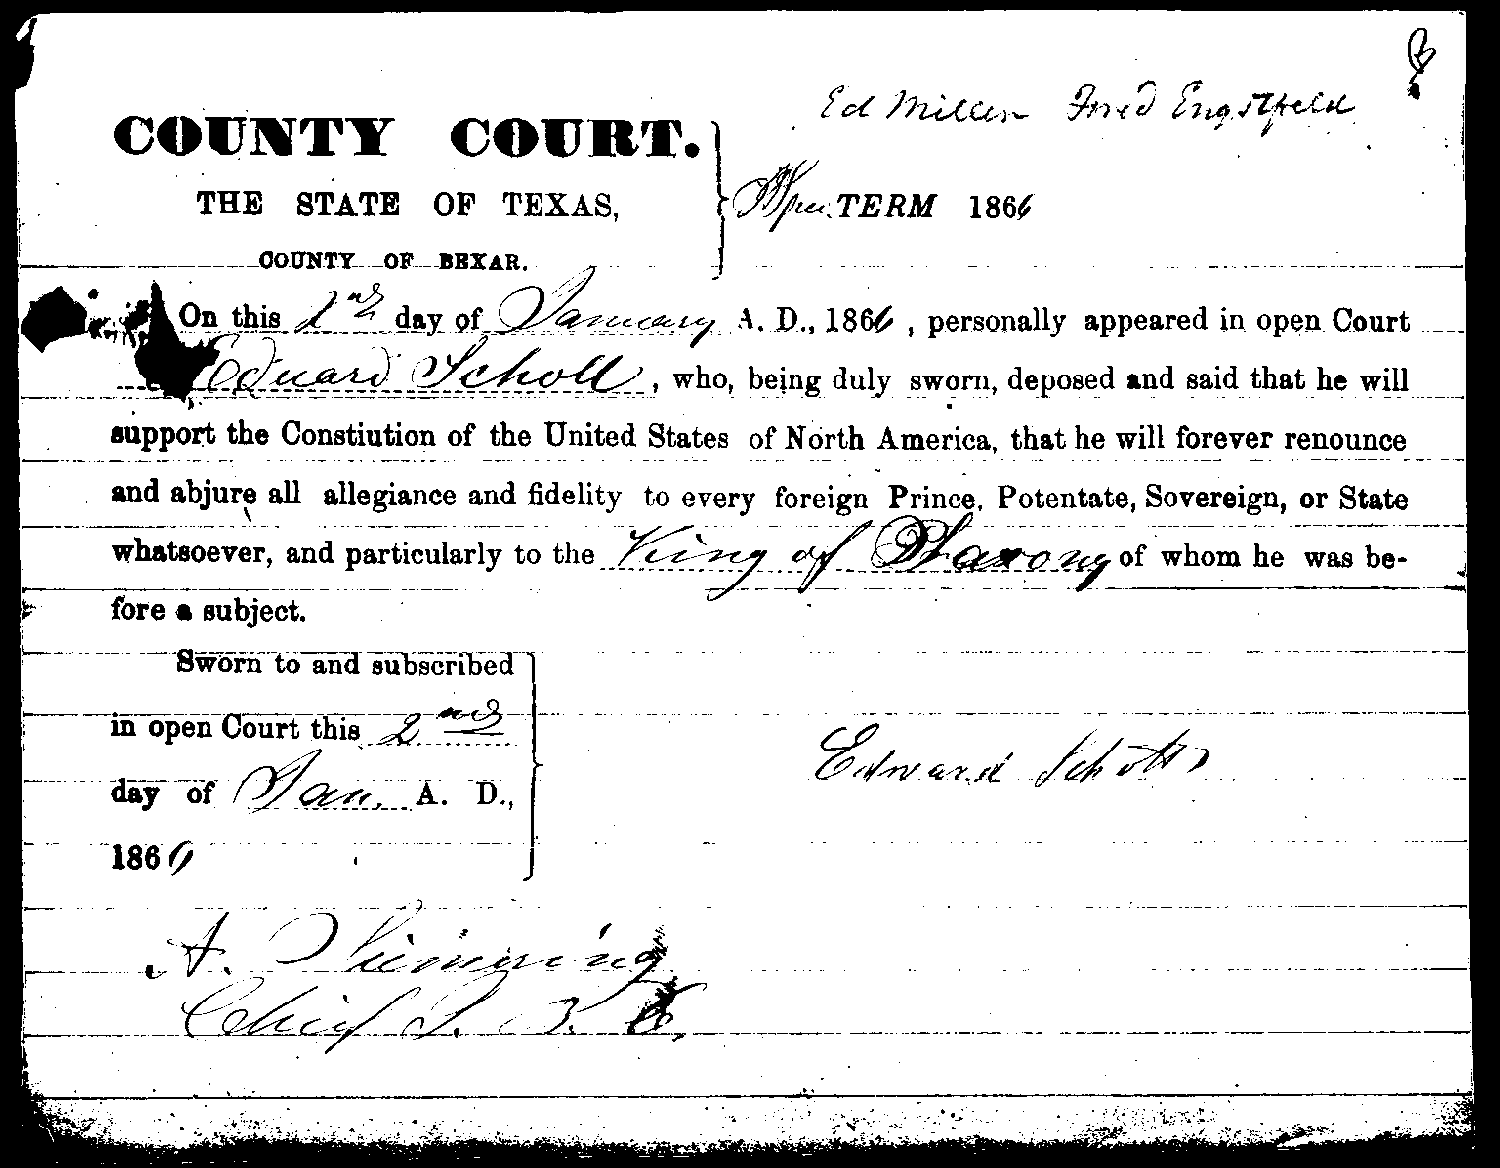 Ed Miller Fred Engstfeld
COUNTY COURT.
THE STATE OF TEXAS,
TERM 1866
COUNTY OF BEXAR.
On this 2nd day of January A. D., 1866, personally appeared in open Court
Eduard Scholl, who, being duly sworn, deposed and said that he will
support the Constiution of the United States of North America, that he will forever renounce
and abjure all allegiance and fidelity to every foreign Prince, Potentate, Sovereign, or State
whatsoever, and particularly to the King of Saxony of whom he was be-
fore a subject.
Sworn to and subscribed
in open Court this 2nd
Edward Scholl
day of Jan. A. D.,
1866
A. Siemering
Chief J. B. C.